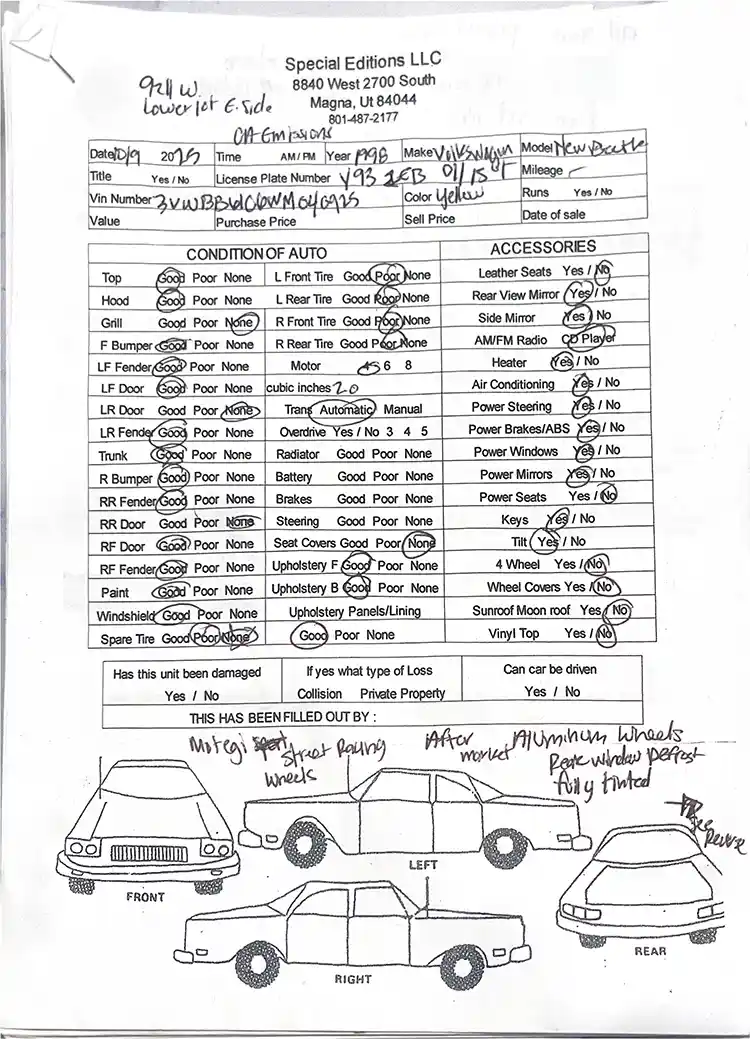 Special Editions LLC
8840 West 2700 South
Magna, Ut 84044
801-487-2177
924 W.
Lower lot E. Side
CA Emissions
Date 10/9 2025 Time AM / PM Year 1998 Make Volkswagen Model New Beetle
Title Yes / No License Plate Number Y93 2EB 01/15 Mileage -
Vin Number Color Yellow Runs Yes / No
Value Purchase Price Sell Price Date of sale
CONDITION OF AUTO ACCESSORIES
Top Good Poor None L Front Tire Good Poor None Leather Seats Yes / No
Hood Good Poor None L Rear Tire Good Poor None Rear View Mirror Yes / No
Grill Good Poor None R Front Tire Good Poor None Side Mirror Yes / No
F Bumper Good Poor None R Rear Tire Good Poor None AM/FM Radio CD Player
LF Fender Good Poor None Motor 4 6 8 Heater Yes / No
LF Door Good Poor None cubic inches 2.0 Air Conditioning Yes / No
LR Door Good Poor None Trans Automatic Manual Power Steering Yes / No
LR Fender Good Poor None Overdrive Yes / No 3 4 5 Power Brakes/ABS Yes / No
Trunk Good Poor None Radiator Good Poor None Power Windows Yes / No
R Bumper Good Poor None Battery Good Poor None Power Mirrors Yes / No
RR Fender Good Poor None Brakes Good Poor None Power Seats Yes / No
RR Door Good Poor None Steering Good Poor None Keys Yes / No
RF Door Good Poor None Seat Covers Good Poor None Tilt Yes / No
RF Fender Good Poor None Upholstery F Good Poor None 4 Wheel Yes / No
Paint Good Poor None Upholstery B Good Poor None Wheel Covers Yes / No
Windshield Good Poor None Upholstery Panels/Lining Sunroof Moon roof Yes / No
Spare Tire Good Poor None Good Poor None Vinyl Top Yes / No
Has this unit been damaged If yes what type of Loss Can car be driven
Yes / No Collision Private Property Yes / No
THIS HAS BEEN FILLED OUT BY :
Motegi Street Racing After Aluminum Wheels
Wheels market Rear window Defrost
fully tinted
See
Reverse
LEFT
FRONT
REAR
RIGHT